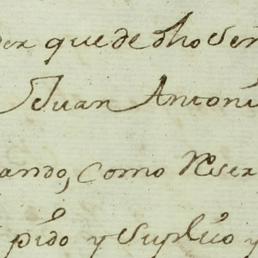 que de dho Señ
Juan Antoni
ando, como
pido y suplico y